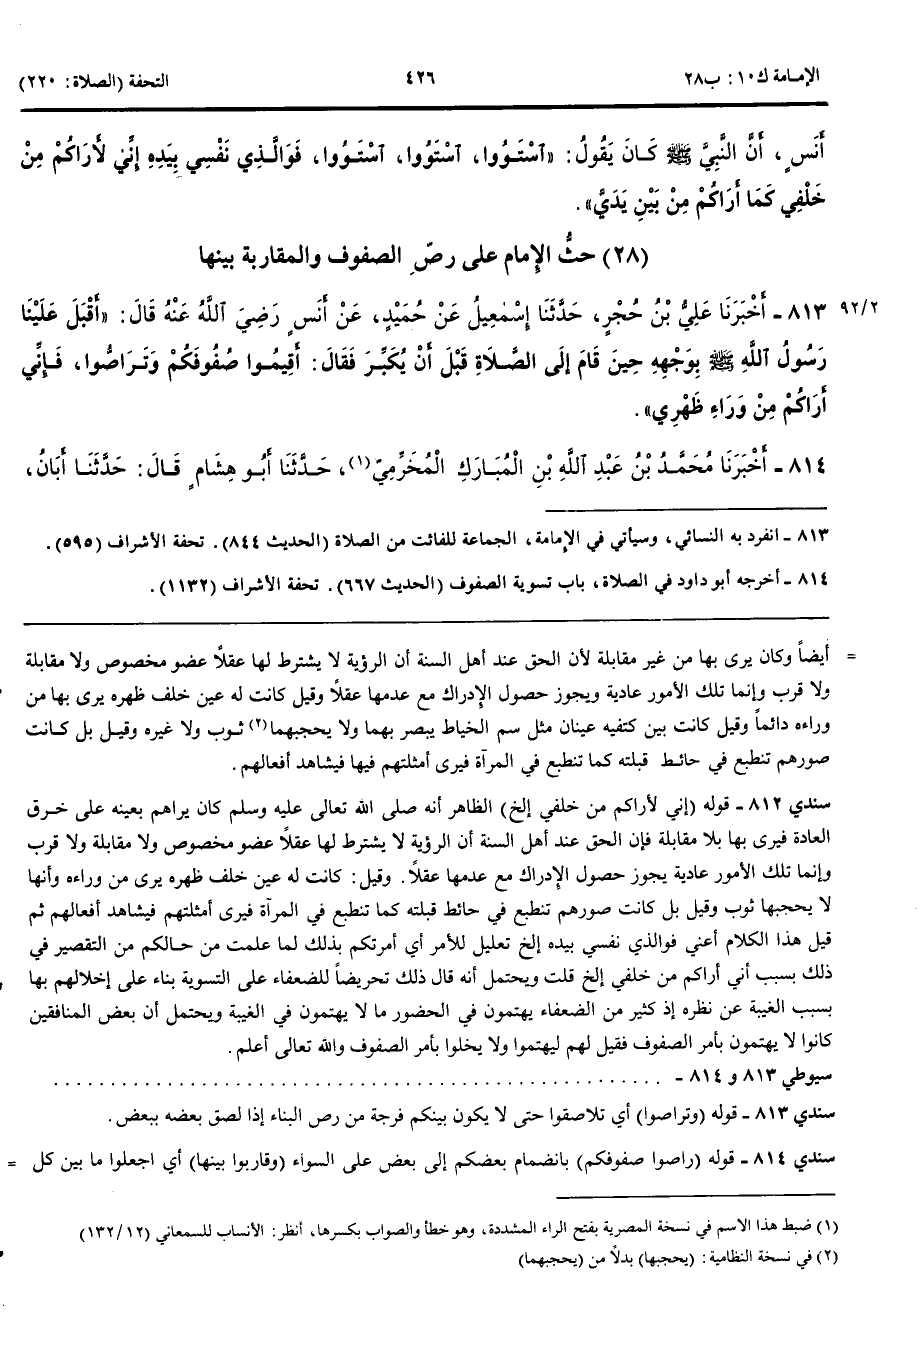 الإمامة ك١٠: ب٢٨ ٤٢٦ التحفة (الصلاة: ٢٢٠)
أَنَسٍ، أَنَّ النَّبِيَّ ﷺ كَانَ يَقُولُ: «ٱسْتَوُوا، ٱسْتَوُوا، ٱسْتَوُوا، فَوَٱلَّذِي نَفْسِي بِيَدِهِ إِنِّي لأَرَاكُمْ مِنْ
خَلْفِي كَمَا أَرَاكُمْ مِنْ بَيْنِ يَدَيَّ».
(٢٨) حثُّ الإِمام على رصِّ الصفوف والمقاربة بينها
٩٢/٢ ٨١٣ ـ أَخْبَرَنَا عَلِيُّ بْنُ حُجْرٍ، حَدَّثَنَا إِسْمٰعِيلُ عَنْ حُمَيْدٍ، عَنْ أَنَسٍ رَضِيَ ٱللَّهُ عَنْهُ قَالَ: «أَقْبَلَ عَلَيْنَا
رَسُولُ ٱللَّهِ ﷺ بِوَجْهِهِ حِينَ قَامَ إِلَى الصَّلَاةِ قَبْلَ أَنْ يُكَبِّرَ فَقَالَ: أَقِيمُوا صُفُوفَكُمْ وَتَرَاصُّوا، فَإِنِّي
أَرَاكُمْ مِنْ وَرَاءِ ظَهْرِي».
٨١٤ ـ أَخْبَرَنَا مُحَمَّدُ بْنُ عَبْدِ ٱللَّهِ بْنِ الْمُبَارَكِ الْمُخَرِّمِيّ(١)، حَدَّثَنَا أَبُو هِشَامٍ قَالَ: حَدَّثَنَا أَبَانُ،
٨١٣ ـ انفرد به النسائي، وسيأتي في الإمامة، الجماعة للفائت من الصلاة (الحديث ٨٤٤). تحفة الأشراف (٥٩٥).
٨١٤ ـ أخرجه أبو داود في الصلاة، باب تسوية الصفوف (الحديث ٦٦٧). تحفة الأشراف (١١٣٢).
= أيضاً وكان يرى بها من غير مقابلة لأن الحق عند أهل السنة أن الرؤية لا يشترط لها عقلاً عضو مخصوص ولا مقابلة
ولا قرب وإنما تلك الأمور عادية ويجوز حصول الإدراك مع عدمها عقلاً وقيل كانت له عين خلف ظهره يرى بها من
وراءه دائماً وقيل كانت بين كتفيه عينان مثل سم الخياط يبصر بهما ولا يحجبهما(٢) ثوب ولا غيره وقيل بل كانت
صورهم تنطبع في حائط قبلته كما تنطبع في المرآة فيرى أمثلتهم فيها فيشاهد أفعالهم.
سندي ٨١٢ ـ قوله (إني لأراكم من خلفي إلخ) الظاهر أنه صلى الله تعالى عليه وسلم كان يراهم بعينه على خرق
العادة فيرى بها بلا مقابلة فإن الحق عند أهل السنة أن الرؤية لا يشترط لها عقلاً عضو مخصوص ولا مقابلة ولا قرب
وإنما تلك الأمور عادية يجوز حصول الإدراك مع عدمها عقلاً. وقيل: كانت له عين خلف ظهره يرى من وراءه وأنها
لا يحجبها ثوب وقيل بل كانت صورهم تنطبع في حائط قبلته كما تنطبع في المرآة فيرى أمثلتهم فيشاهد أفعالهم ثم
قيل هذا الكلام أعني فوالذي نفسي بيده إلخ تعليل للأمر أي أمرتكم بذلك لما علمت من حالكم من التقصير في
ذلك بسبب أني أراكم من خلفي إلخ قلت ويحتمل أنه قال ذلك تحريضاً للضعفاء على التسوية بناء على إخلالهم بها
بسبب الغيبة عن نظره إذ كثير من الضعفاء يهتمون في الحضور ما لا يهتمون في الغيبة ويحتمل أن بعض المنافقين
كانوا لا يهتمون بأمر الصفوف فقيل لهم ليهتموا ولا يخلوا بأمر الصفوف والله تعالى أعلم.
سيوطي ٨١٣ و ٨١٤ ـ ............................................................
سندي ٨١٣ ـ قوله (وتراصوا) أي تلاصقوا حتى لا يكون بينكم فرجة من رص البناء إذا لصق بعضه ببعض.
سندي ٨١٤ ـ قوله (راصوا صفوفكم) بانضمام بعضكم إلى بعض على السواء (وقاربوا بينها) أي اجعلوا ما بين كل =
(١) ضبط هذا الاسم في نسخة المصرية بفتح الراء المشددة، وهو خطأ والصواب بكسرها، أنظر: الأنساب للسمعاني (١٣٢/١٢)
(٢) في نسخة النظامية: (يحجبها) بدلاً من (يحجبهما)